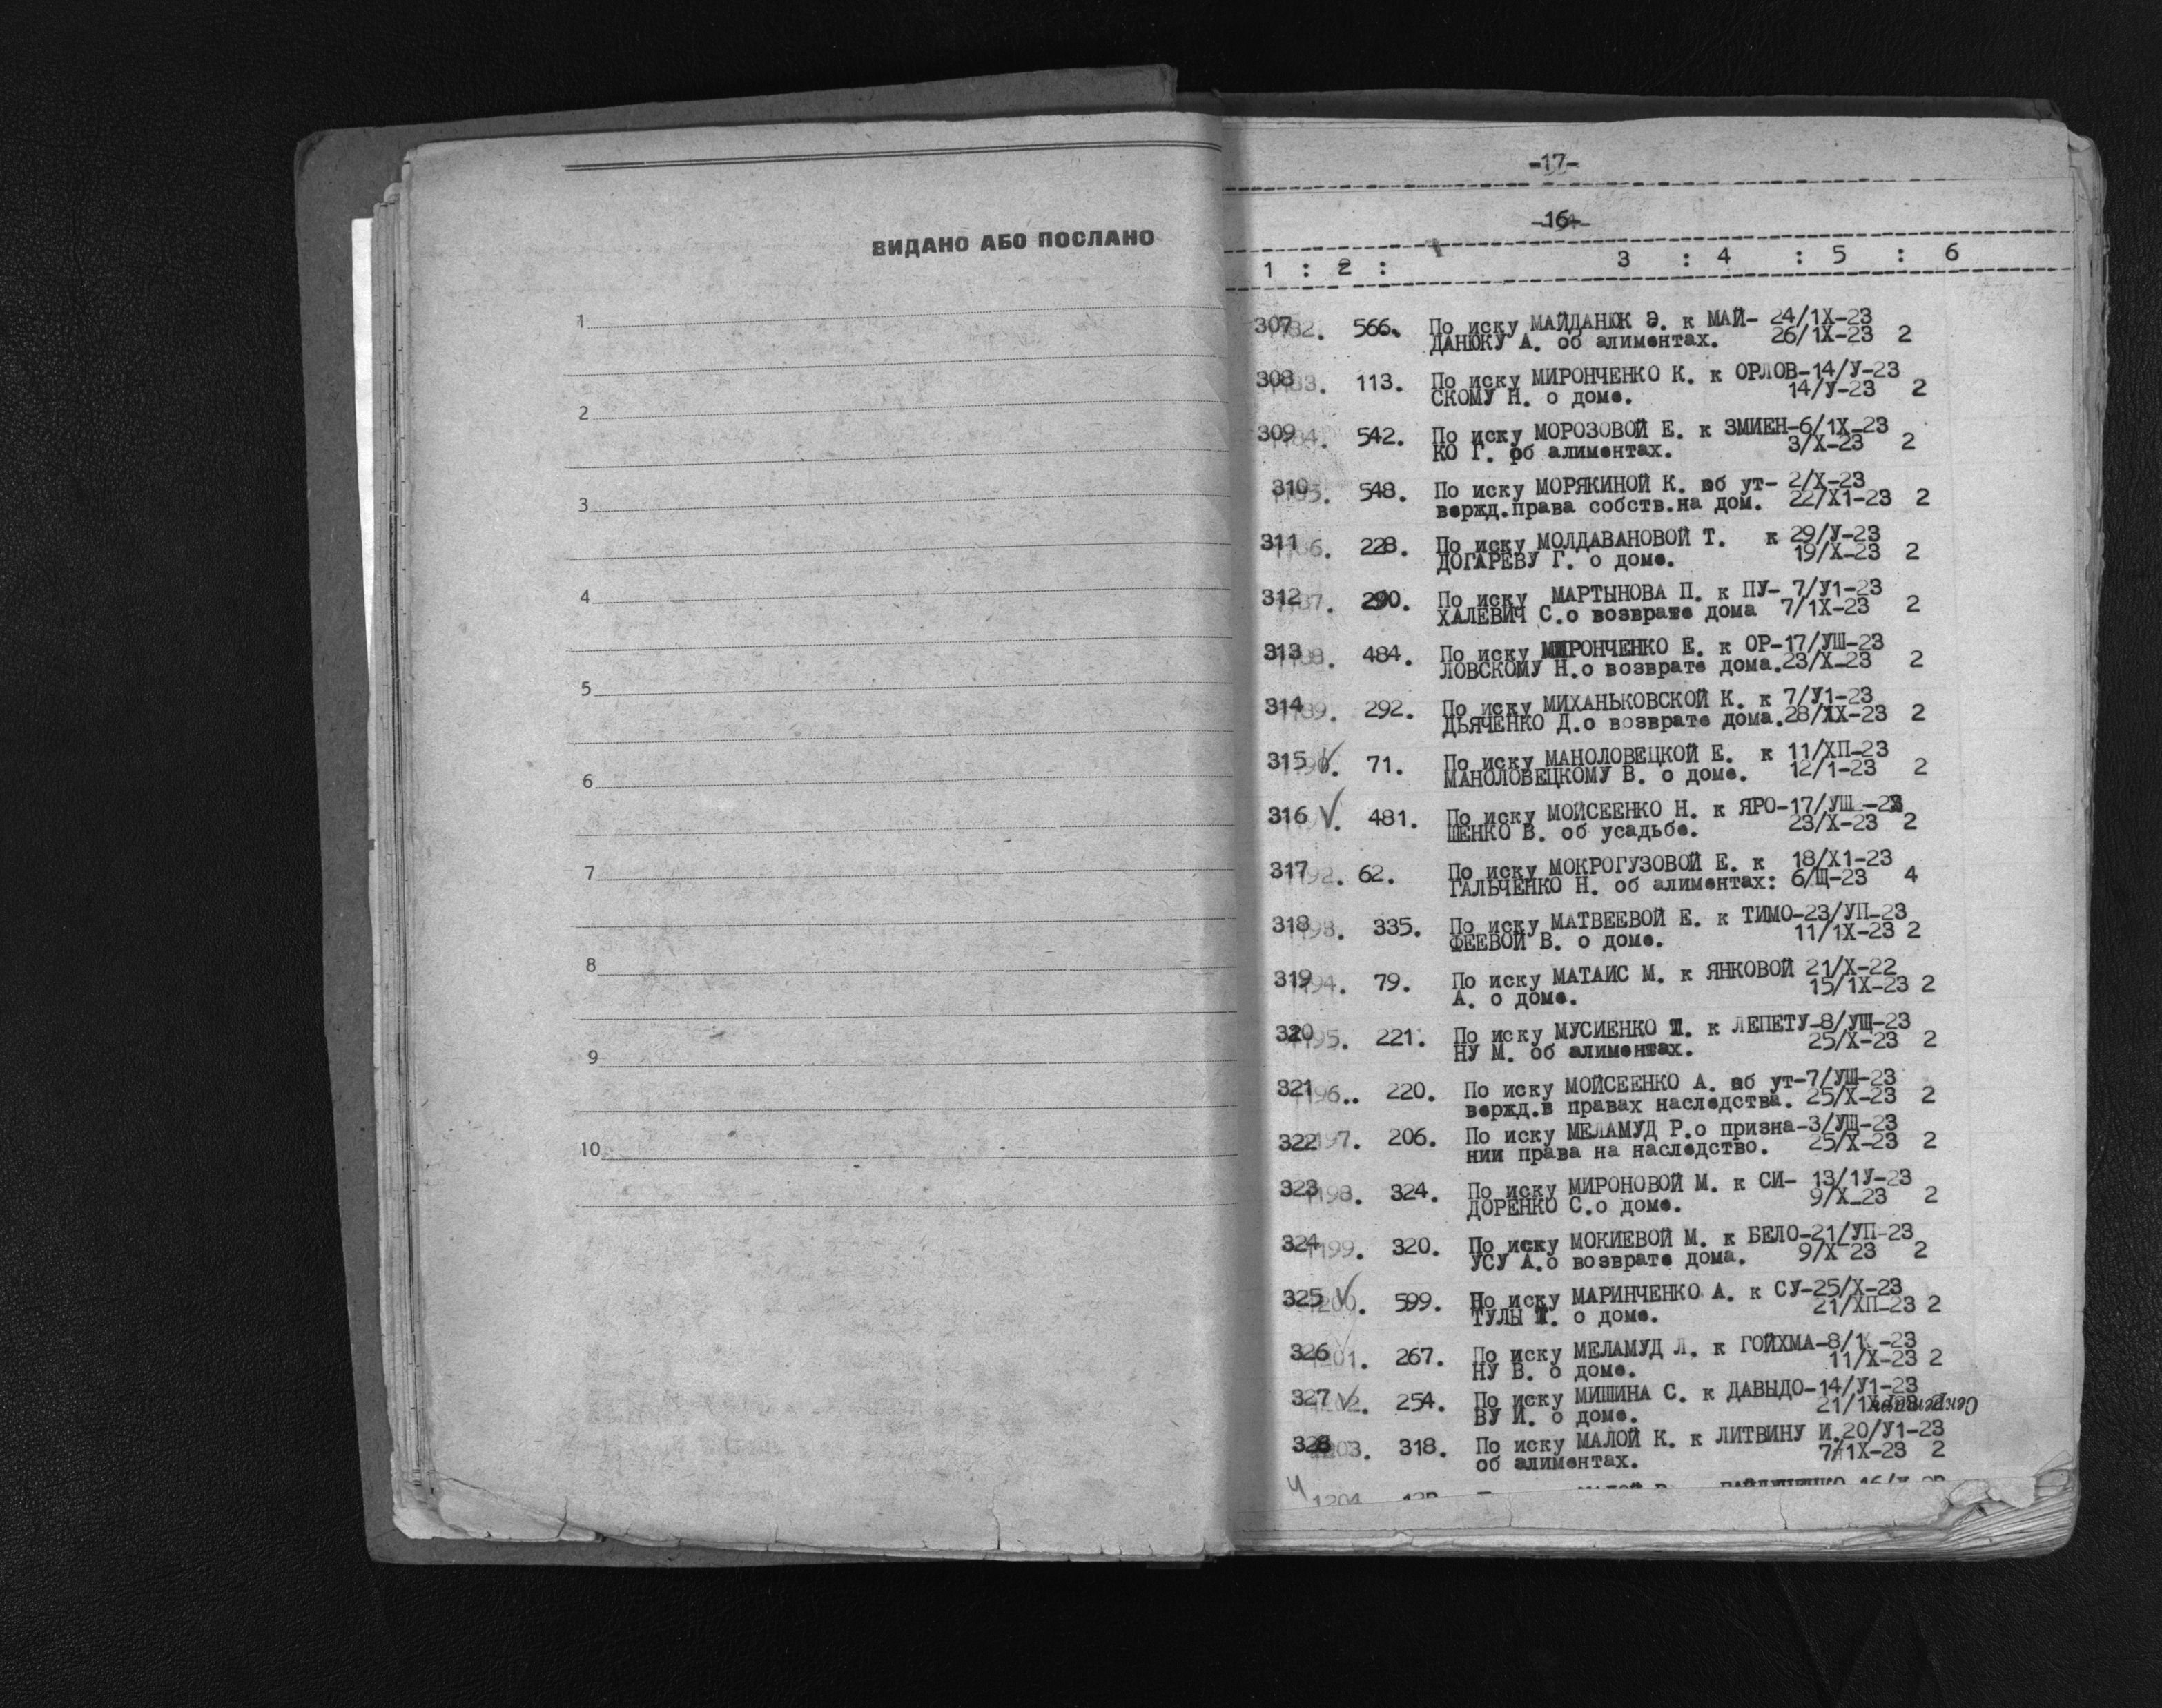 ВИДАНО АБО ПОСЛАНО
1
2
3
4
5
6
7
8
9
10
-17-
-16-
1 : 2 : 3 : 4 : 5 : 6
307 566. По иску МАЙДАНЮК Э. к МАЙ- 24/1Х-23
ДАНЮКУ А. об алиментах. 26/1Х-23 2
308 113. По иску МИРОНЧЕНКО К. к ОРЛОВ-14/У-23
СКОМУ Н. о доме. 14/У-23 2
309 542. По иску МОРОЗОВОЙ Е. к ЗМИЕН-6/1Х-23
КО Г. об алиментах. 3/Х-23 2
310 548. По иску МОРЯКИНОЙ К. об ут- 2/Х-23
вержд.права собств.на дом. 22/Х1-23 2
311 228. По иску МОЛДАВАНОВОЙ Т. к 29/У-23
ДОГАРЕВУ Г. о доме. 19/Х-23 2
312 290. По иску МАРТЫНОВА П. к ПУ- 7/У1-23
ХАЛЕВИЧ С.о возврате дома 7/1Х-23 2
313 484. По иску МИРОНЧЕНКО Е. к ОР-17/УШ-23
ЛОВСКОМУ Н.о возврате дома.23/Х-23 2
314 292. По иску МИХАНЬКОВСКОЙ К. к 7/У1-23
ДЬЯЧЕНКО Д.о возврате дома.28/1Х-23 2
315 V. 71. По иску МАНОЛОВЕЦКОЙ Е. к 11/ХП-23
МАНОЛОВЕЦКОМУ В. о доме. 12/1-23 2
316 V. 481. По иску МОЙСЕЕНКО Н. к ЯРО-17/УШ-23
ШЕНКО В. об усадьбе. 23/Х-23 2
317 1192. 62. По иску МОКРОГУЗОВОЙ Е. к 18/Х1-23
ГАЛЬЧЕНКО Н. об алиментах: 6/Щ-23 4
318 335. По иску МАТВЕЕВОЙ Е. к ТИМО-23/УП-23
ФЕЕВОЙ В. о доме. 11/1Х-23 2
319 1194. 79. По иску МАТАИС М. к ЯНКОВОЙ 21/Х-22
А. о доме. 15/1Х-23 2
320 1195. 221. По иску МУСИЕНКО к ЛЕПЕТУ-8/УЩ-23
НУ М. об алиментах. 25/Х-23 2
321 1196.. 220. По иску МОЙСЕЕНКО А. об ут-7/УЩ-23
вержд.в правах наследства. 25/Х-23 2
322 1197. 206. По иску МЕЛАМУД Р.о призна-3/УЩ-23
нии права на наследство. 25/Х-23 2
323 1198. 324. По иску МИРОНОВОЙ М. к СИ- 13/1У-23
ДОРЕНКО С.о доме. 9/Х-23 2
324 1199. 320. По иску МОКИЕВОЙ М. к БЕЛО-21/УП-23
УСУ А.о возврате дома. 9/Х 23 2
325 V 1200. 599. По иску МАРИНЧЕНКО А. к СУ-25/Х-23
ТУЛЫ о доме. 21/ХП-23 2
326 1201. 267. По иску МЕЛАМУД Л. к ГОЙХМА-8/1 -23
НУ В. о доме. 11/Х-23 2
327 V 1202. 254. По иску МИШИНА С. к ДАВЫДО-14/У1-23
ВУ И. о доме. 21/1Х-23
328 1203. 318. По иску МАЛОЙ К. к ЛИТВИНУ И.20/У1-23
об алиментах. 7/1Х-23 2
1204